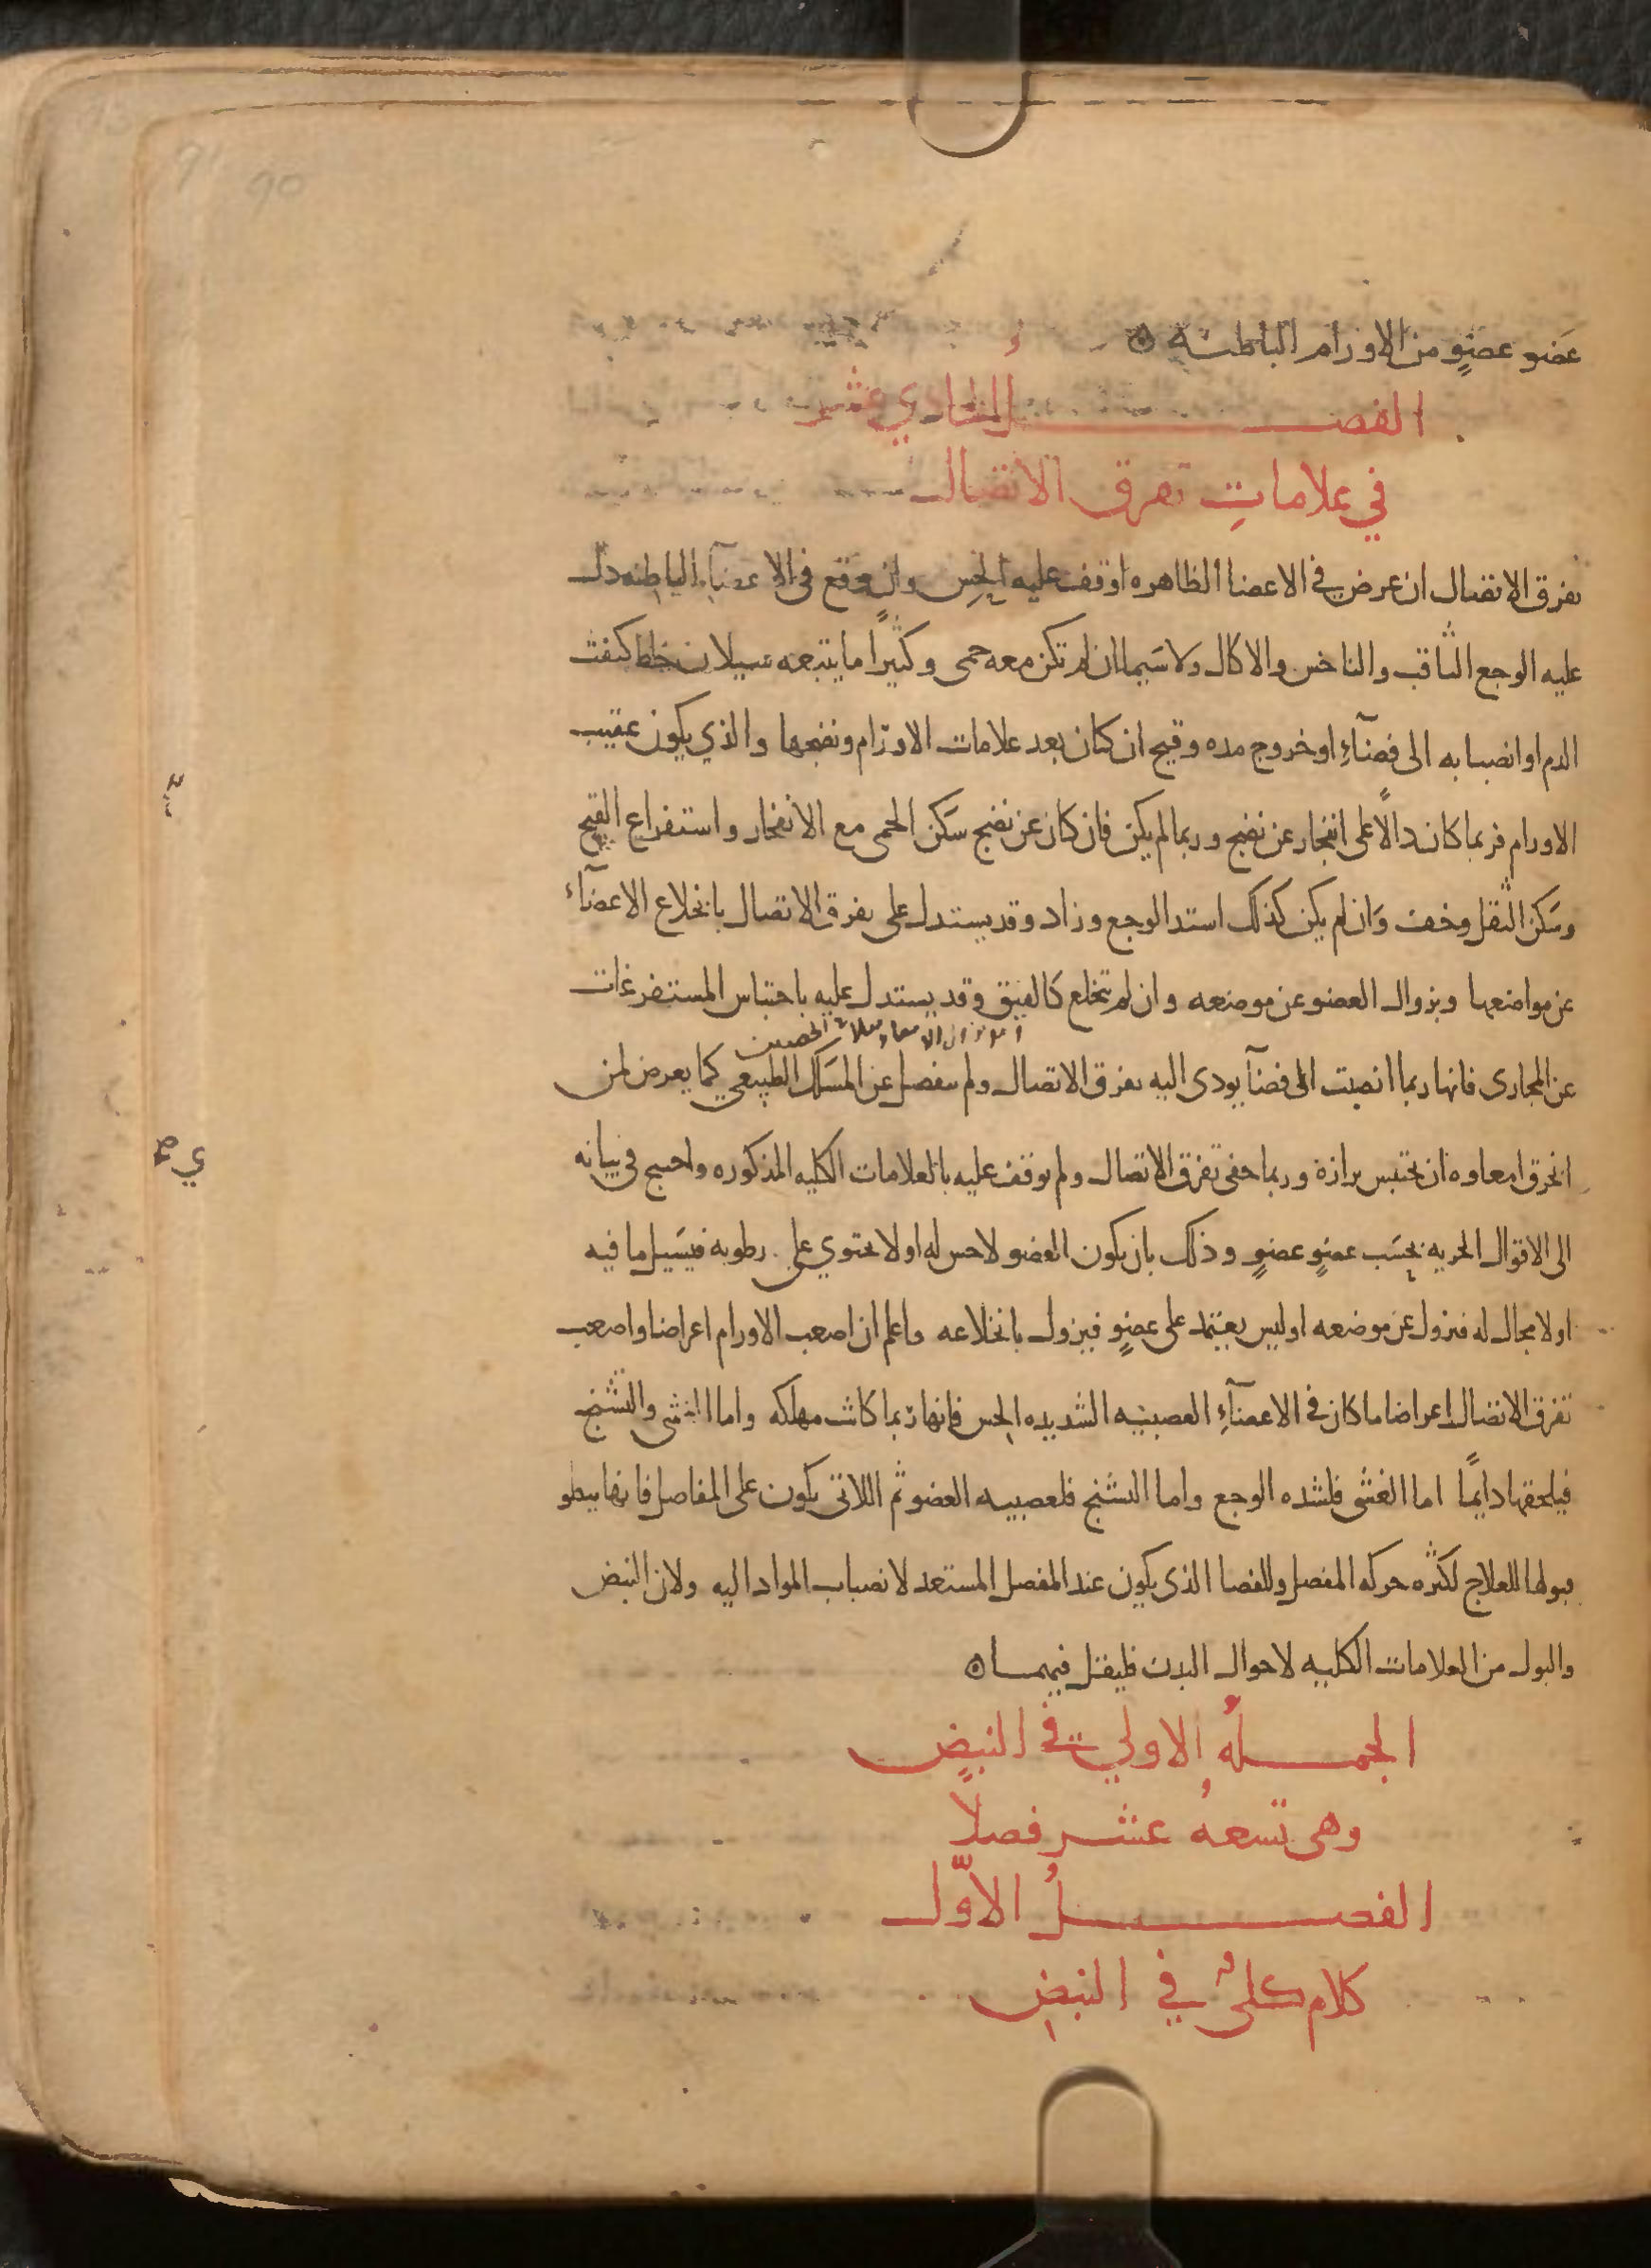 91 90
عضو عضوٍ من الاورام الباطنة ه
الفصـــل الحادي عشر
في علاماتِ تفرق الاتصال
تفرق الاتصال ان عرض في الاعضا الظاهره اوقف عليه الحِس وان وقع في الاعضآءِ الباطنه دل
عليه الوجع الثاقب والناخس والاكال ولا سَيما ان لم تكن معه حمى وكثيراً ما يتبعه سيلان خلط كنفث
الدم او انصبابه الى فضآءِ او خروج مده وقيح ان كان بعد علامات الاورام ونضجها والذي يكون عقيب
الاورام فربما كان دالاً على انفجار عن نضج وربما لم يكن فان كان عن نضج سَكن الحمى مع الانفجار واستفراغ القيح
وسَكن الثقل وخف وَان لم يكن كذلك اشتد الوجع وزاد وقد يستدل على تفرق الاتصال بانخلاع الاعضآء
عن مواضعها وبزوال العضو عن موضعه وان لم تنخلع كالفتق وقد يستدل عليه باحتباس المستفرغات
عن المجارى فانها ربما انصبت الى فضآ يودى اليه تفرق الاتصال ولم ينفصل عن المسَلك الطبيعي كما يعرض لمن
انخرق امعاوه ان يحتبس برازه وربما خفى تفرق الاتصال ولم يوقف عليه بالعلامات الكليه المذكوره واحتيج في بيانه
الى الاقوال الجزيه بحسَب عضوٍ عضوٍ وذلك بان يكون العضو لا حس له او لا يحتوي على رطوبه فيسَيل ما فيه
او لا مجال له فيزول عن موضعه او ليس يعتمد على عضوٍ فيزول بانخلاعه واعلم ان اصعب الاورام اعراضا واصعب
تفرق الاتصال اعراضا ما كان في الاعضآءِ العصبيه الشديده الحِس فانها ربما كانت مهلكه واما الغشى والتشنج
فيلحقها دايمًا اما الغشى فلشده الوجع واما التشنج فلعصبيه العضو ثم اللاتى يكون على المفاصل فانها يبطو
قبولها للعلاج لكثره حركه المفصل وللفضا الذى يكون عند المفصل المستعد لانصباب المواد اليه ولان النبض
والبول من العلامات الكليه لاحوال البدن فليقل فيهما ه
الجمـــلهُ الاولي في النبضِ
وهي تسعهُ عشر فصلاً
الفصـــلُ الاوّل
كلام كليٌ في النبضِ